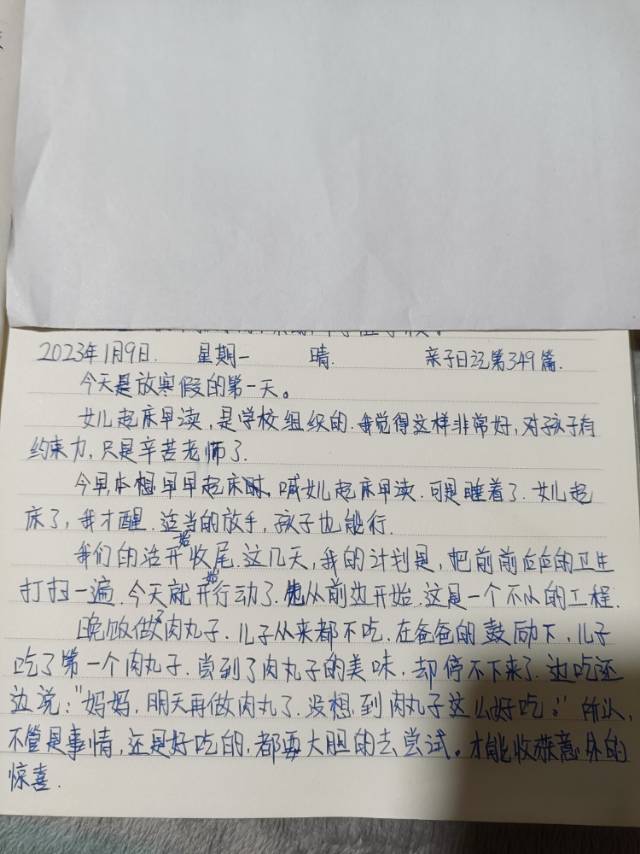 2023年1月9日. 星期一 晴. 亲子日记第349篇.
今天是放寒假的第一天。
女儿起床早读,是学校组织的.我觉得这样非常好,对孩子有
约束力,只是辛苦老师了.
今早本想早早起床,喊女儿起床早读.可是睡着了.女儿起
床了,我才醒.适当的放手,孩子也能行.
我们的活开始收尾.这几天,我的计划是,把前前后后的卫生
打扫一遍.今天就开始行动了.先从前边开始.这是一个不小的工程.
晚饭做了肉丸子.儿子从来都不吃.在爸爸的鼓励下,儿子
吃了第一个肉丸子.尝到了肉丸子的美味,却停不下来了.边吃还
边说:"妈妈,明天再做肉丸子.没想到肉丸子这么好吃。"所以,
不管是事情,还是好吃的,都要大胆的去尝试。才能收获意外的
惊喜.